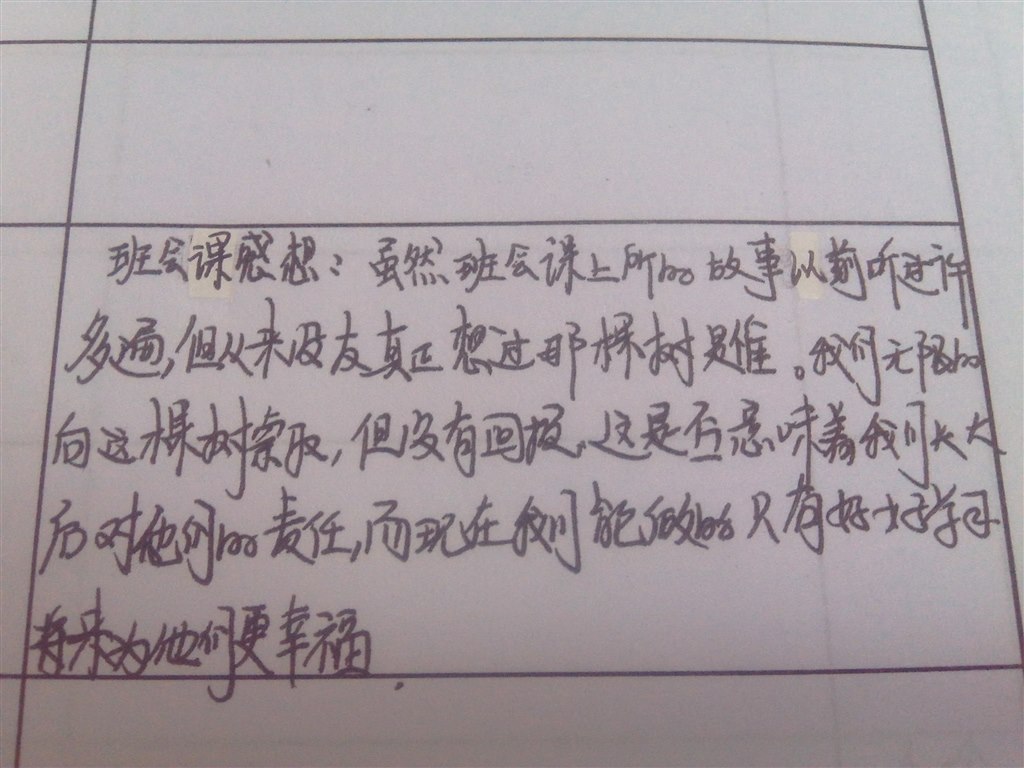 班会课感想：虽然班会课上所的故事以前听过许
多遍，但从来没有真正想过那棵树是谁。我们无限的
向这棵树索取，但没有回报，这是否意味着我们长大
后对他们的责任，而现在我们能做的只有好好学习
将来为他们更幸福.